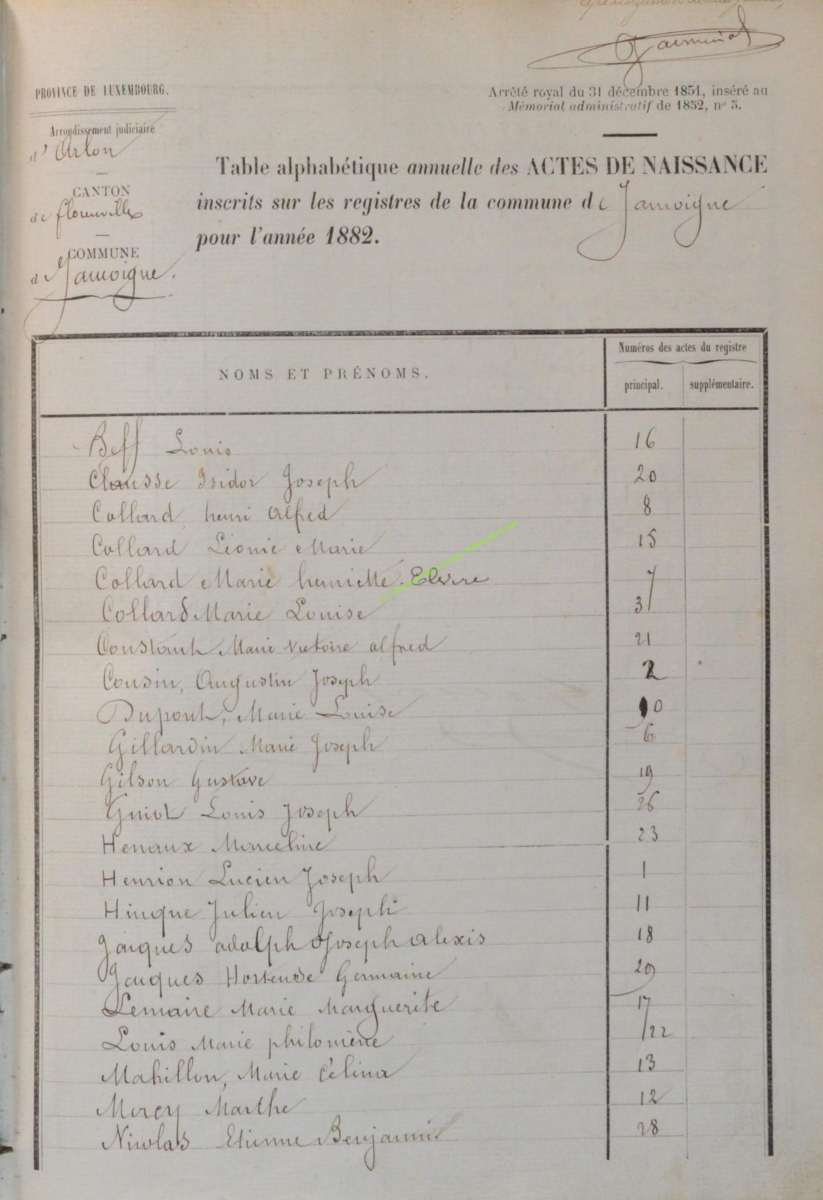 PROVINCE DE LUXEMBOURG.
Arrondissement judiciaire
d'Arlon
CANTON
de florenville
COMMUNE
de Jamoigne.
Arrêté royal du 31 décembre 1851, inséré au
Mémorial administratif de 1852, nº 5.
Table alphabétique annuelle des ACTES DE NAISSANCE
inscrits sur les registres de la commune de Jamoigne
pour l'année 1882.
NOMS ET PRÉNOMS. Numéros des actes du registre
principal. supplémentaire.
Beff Louis 16
Clausse Isidor Joseph 20
Collard, henri Alfred 8
Collard Léonie Marie 15
Collard Marie henriette Elvire 7
Collard Marie Louise 3
Constant Marie Victoire alfred 21
Cousin, Augustin Joseph 2
Dupont, Marie Louise 10
Gillardin Marie Joseph 6
Gilson Gustave 19
Guiot Louis Joseph 26
Henaux Marceline 23
Henrion Lucien Joseph 1
Hinque Julien Joseph 11
Jacques adolph Joseph alexis 18
Jacques Hortense Germaine 29
Lemaire Marie Marguerite 17
Louis Marie philomène 22
Mahillon, Marie Célina 13
Mercy Marthe 12
Nicolas Etienne Benjamin 28